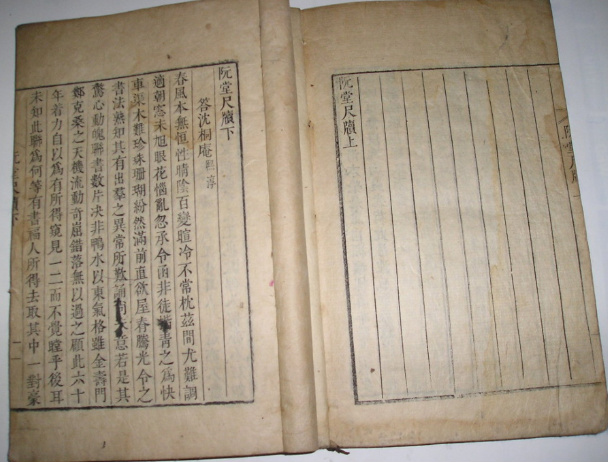 阮堂尺牘
阮堂尺牘上
阮堂尺牘下
答沈桐庵熙淳
春風本無恒性晴陰百變暄冷不常枕茲間尤難調
適朝窓未旭眼花惱亂忽承令函非徒青之爲快
車渠木難珍珠珊瑚紛然滿前直欲屋春騰光令之
書法熟知其有出羣之異常所歎誦意若是其
驚心動魄聯書數片决非鴨水以東氣格雖全壽門
鄭克桑之天機流動奇崛錯落無以過之顧此六十
年着力自以爲有所得窺見一二而不覺瞠乎後耳
未知此聯爲何等有書屬人所得去取其中一對豪
阮堂尺牘下